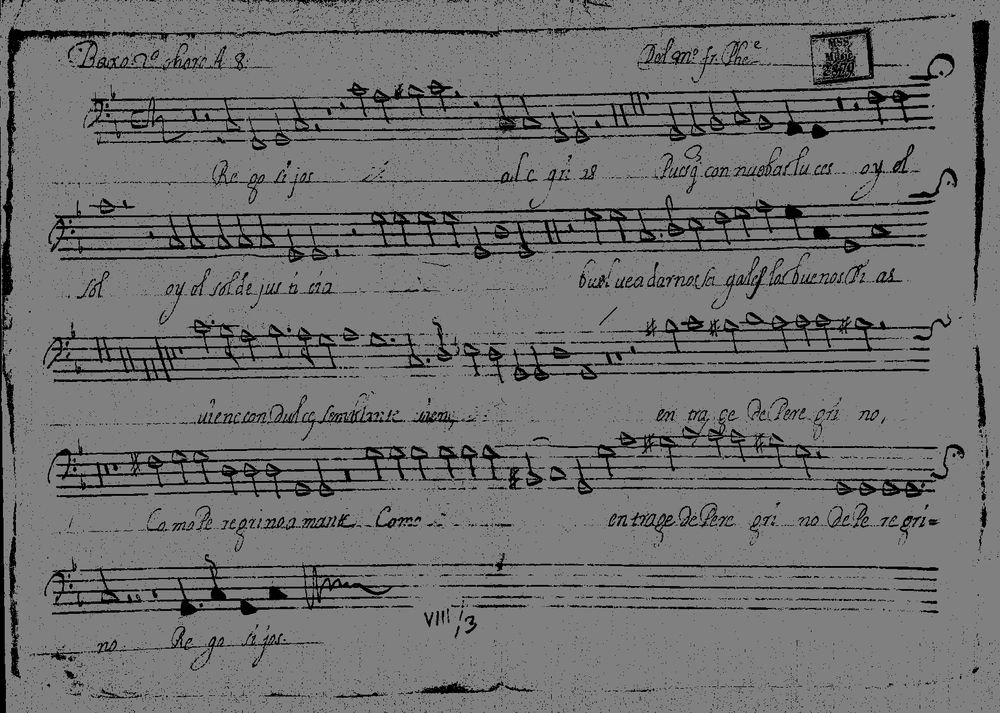 Baxo. 2º choro A 8 Del mº. fr. Phe
Mss. Music 2979
Re go si jos ale gri as Pues q con nuebas lu ces oy el
sol oy el sol de jus ti cia buelue a darnos los buenos Di as
uiene con Dulce semblante uiene en tra ge De Pere gri no,
Como Pe regrino a mante Como en trage de Pere gri no De Pe re gri=
no. Re go si jos.
VIII/3